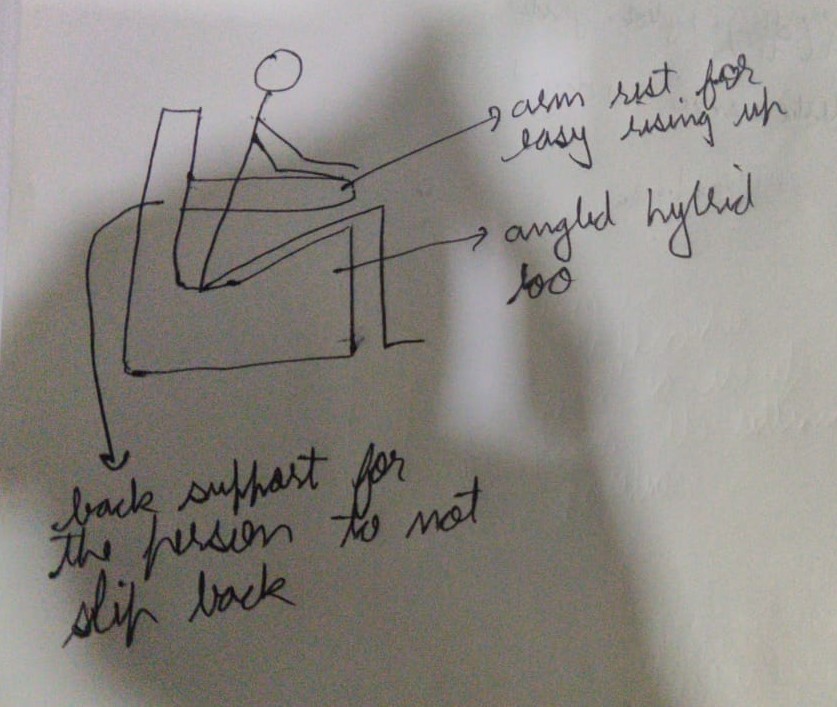 arm rest for
easy rising up
angled hybrid
loo
back support for
the person to not
slip back